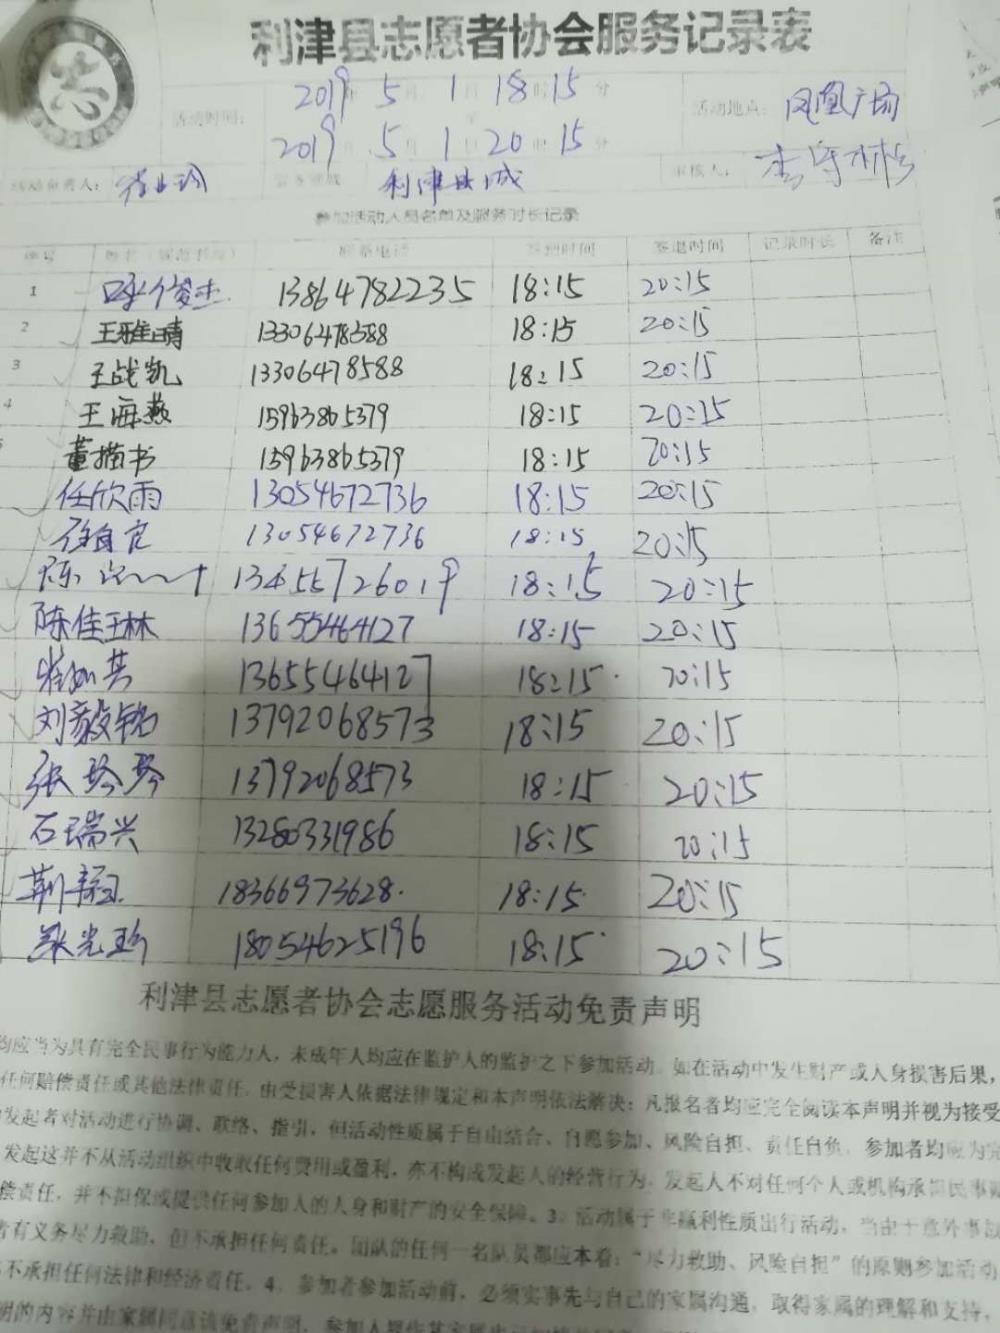 利津县志愿者协会服务记录表
志
活动时间：
2019年5月1日18时15分
至
2019年5月1日20时15分
活动地点：凤凰广场
活动负责人：
利津县城
审核人：
参加活动人员名单及服务时长记录
序号 姓名 联系电话 签到时间 签退时间 记录时长 备注
1 13864782235 18:15 20:15
2 王雅晴 13306478588 18:15 20:15
3 王战凯 13306478588 18:15 20:15
4 王海燕 15963865379 18:15 20:15
5 董描书 15963865379 18:15 20:15
任欣雨 13054672736 18:15 20:15
13054672736 18:15 20:15
陈 18:15 20:15
陈佳琳 13655464127 18:15 20:15
13655464127 18:15 20:15
刘毅铭 13792068573 18:15 20:15
张琴琴 13792068573 18:15 20:15
石瑞兴 13280331986 18:15 20:15
18366973628 18:15 20:15
光珍 18054625196 18:15 20:15
利津县志愿者协会志愿服务活动免责声明
均应当为具有完全民事行为能力人，未成年人均应在监护人的监护之下参加活动。如在活动中发生财产或人身损害后果，
任何赔偿责任或其他法律责任，由受损害人依据法律规定和本声明依法解决；凡报名者均应完全阅读本声明并视为接受
发起者对活动进行协调、联络、指引，但活动性质属于自由结合、自愿参加、风险自担、责任自负，参加者均应为完
发起这并不从活动组织中收取任何费用或盈利，亦不构成发起人的经营行为，发起人不对任何个人或机构承担民事赔
偿责任，并不担保或提供任何参加人的人身和财产的安全保障。3、活动属于非赢利性质出行活动，当由于意外事故
者有义务尽力救助，但不承担任何责任。团队的任何一名队员都应本着：“尽力救助、风险自担”的原则参加活动
不承担任何法律和经济责任。4、参加者参加活动前，必须实事先与自己的家属沟通，取得家属的理解和支持，
明的内容并由家属同意该免责声明，参加人